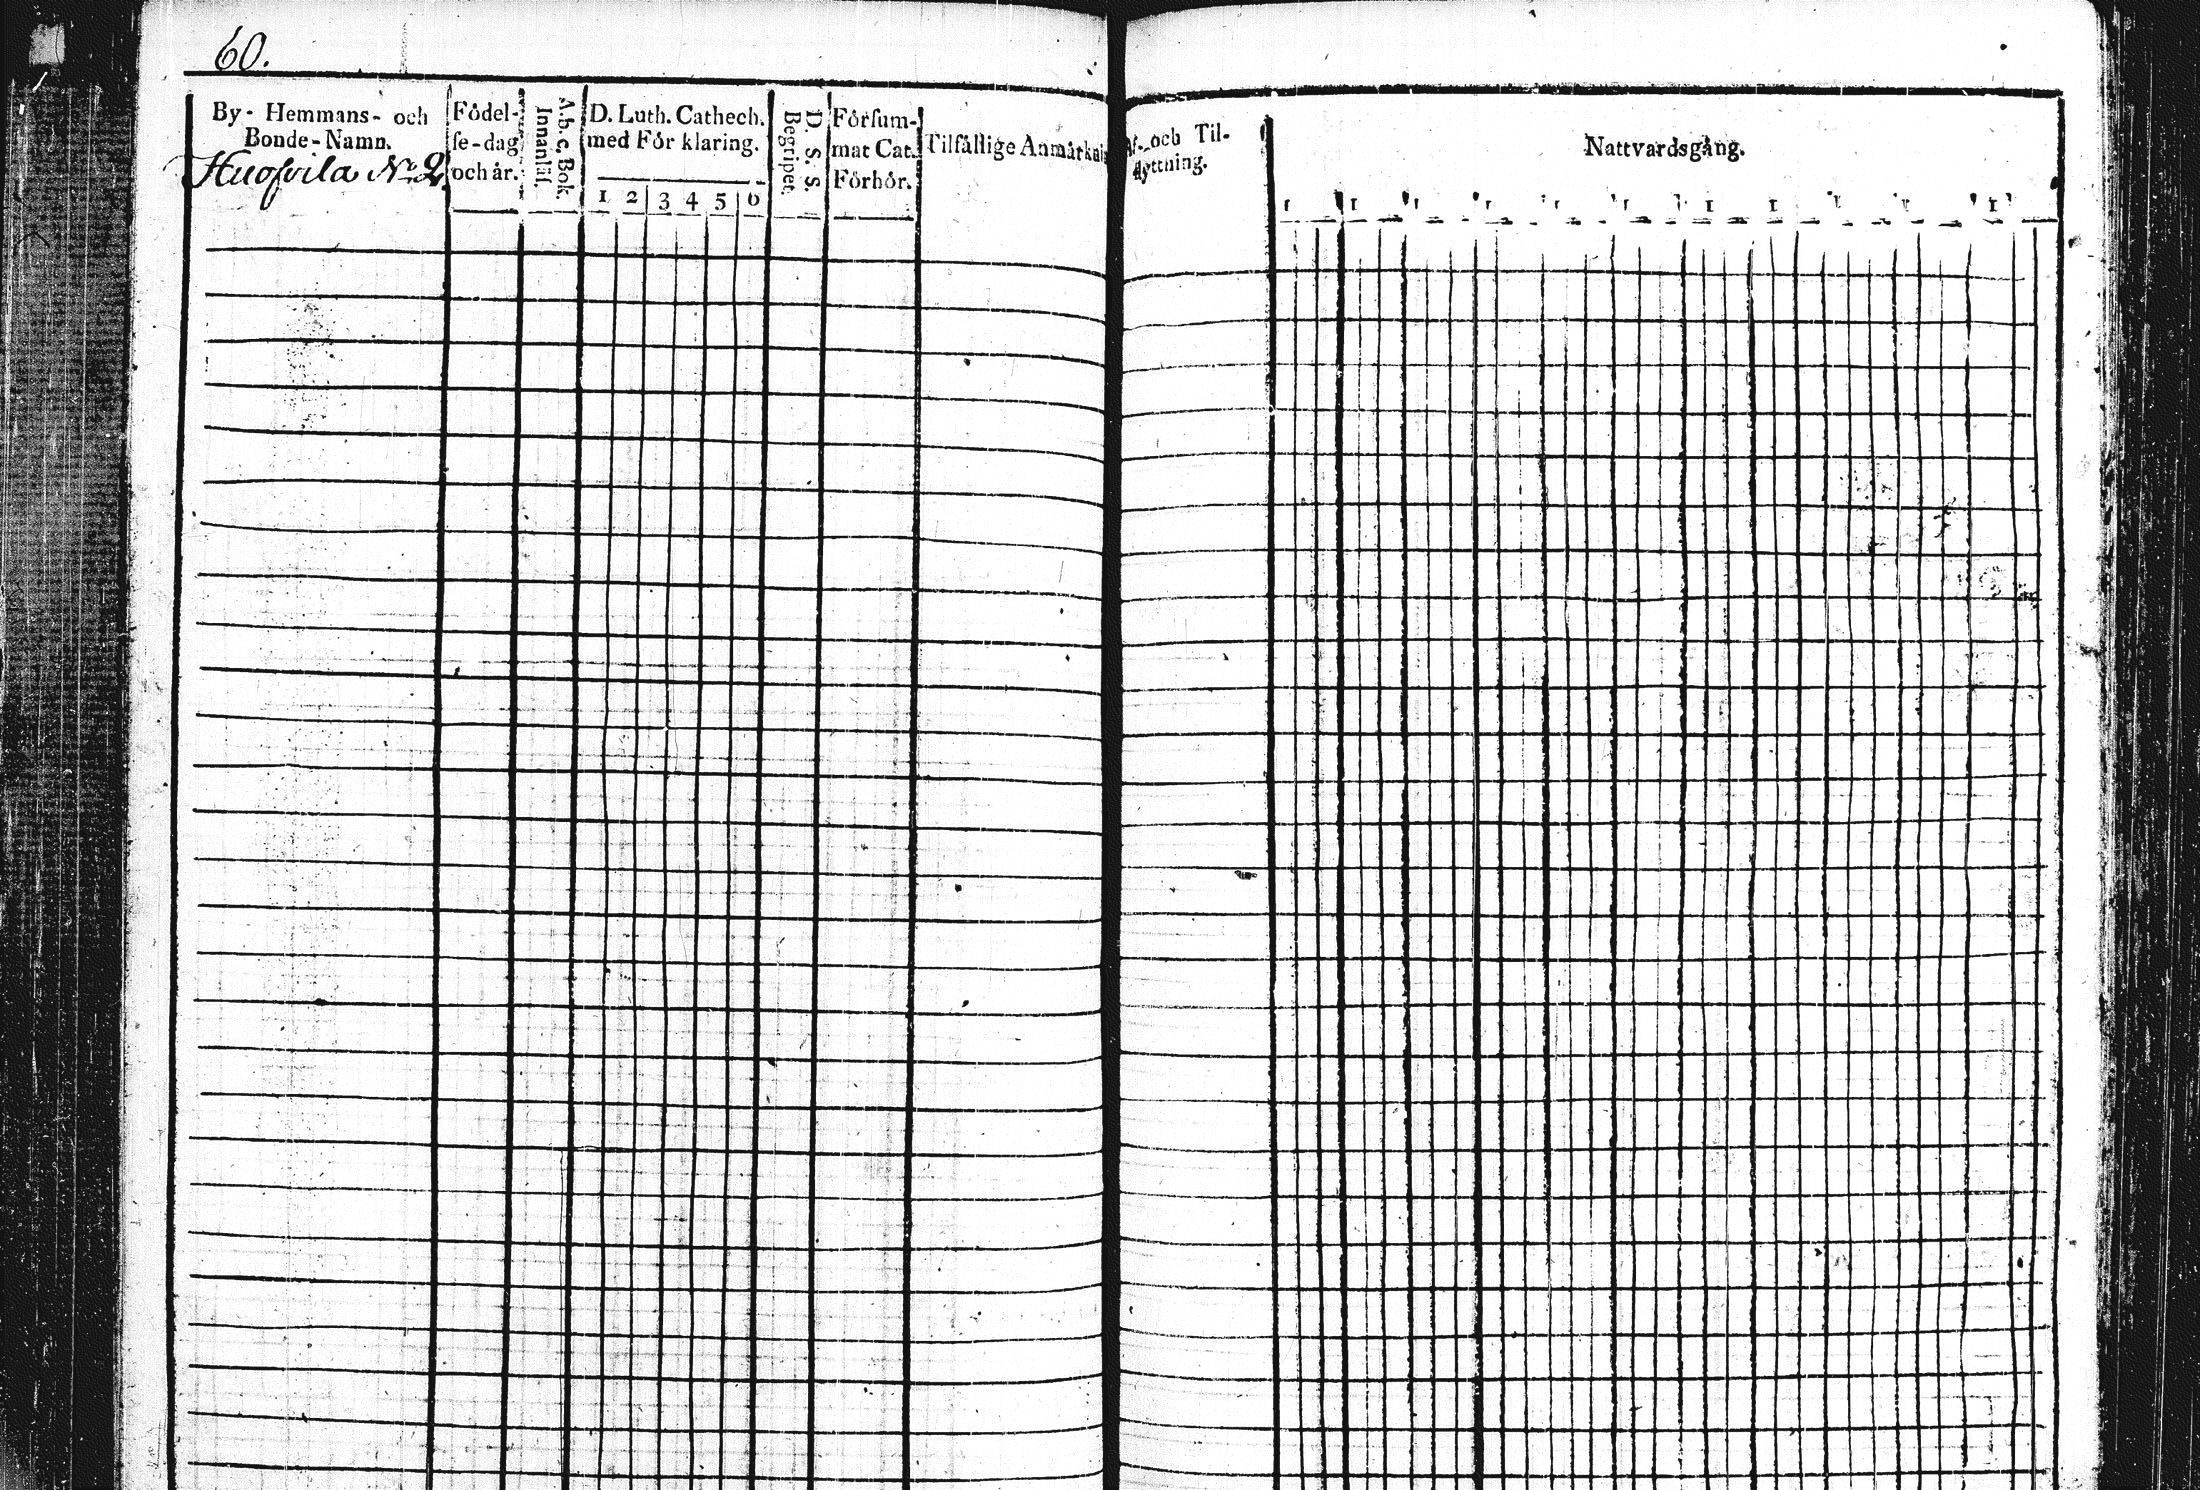 60.
By- Hemmans- och
Bonde-Namn.
No 2.
Födel-
se-dag
och år.
A.b.c. Bok.
Innanläs.
D. Luth. Cathech.
med För klaring.
1 2 3 4 5 6
D. S. S.
Begripet.
Försum-
mat Cat.
Förhör.
Tilfällige Anmärkni
Af- och Til-
flyttning.
Nattvardsgång.
1 1 1 1 1 1 1 1 1 1 1